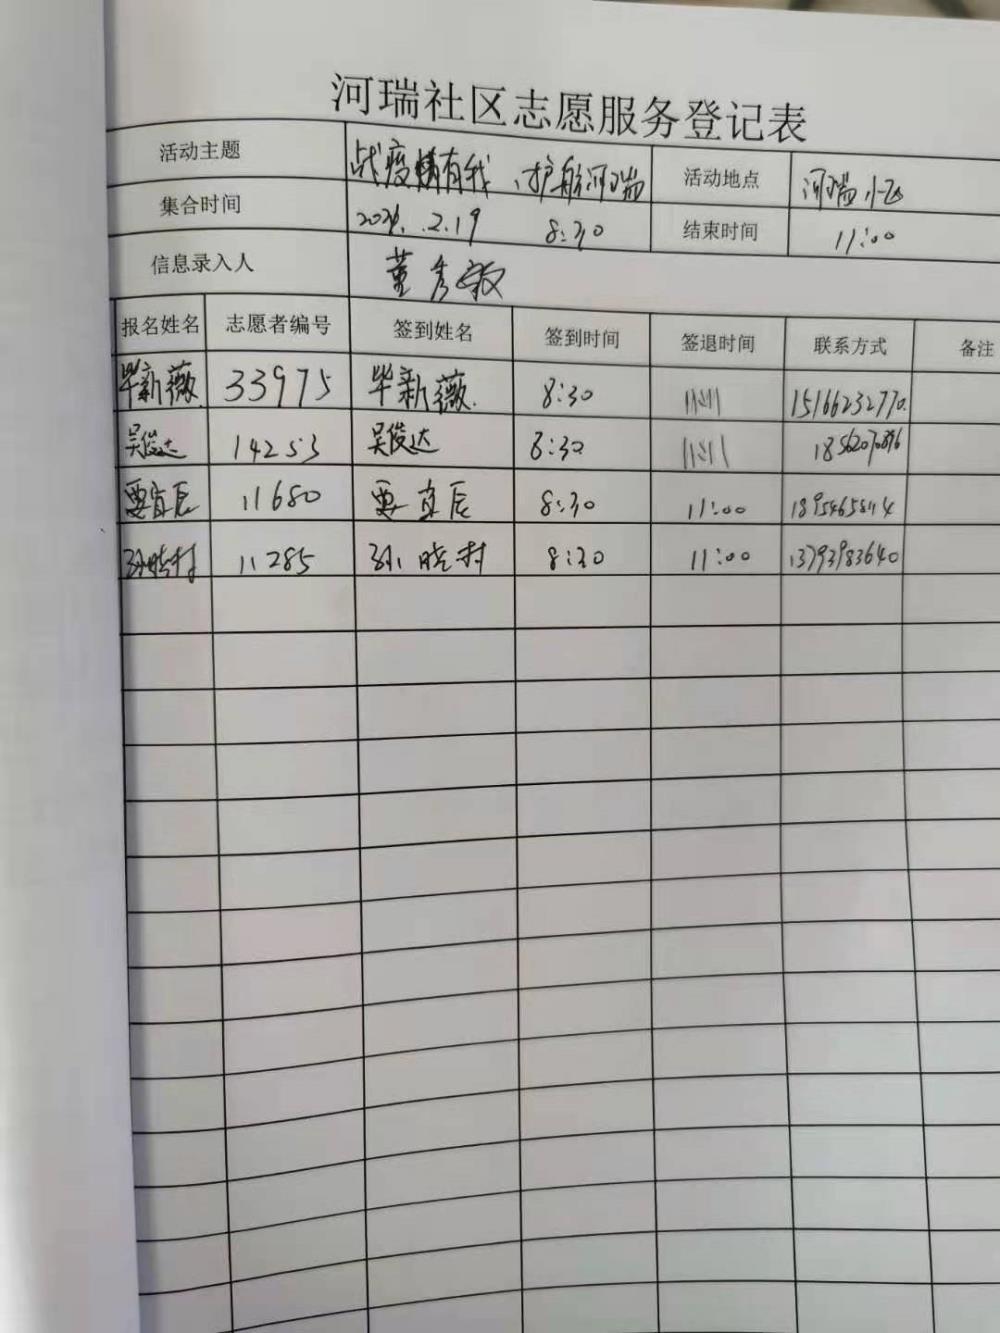 河瑞社区志愿服务登记表
活动主题 战疫情有我、护航河瑞 活动地点 河瑞小区
集合时间 2.19 8:30 结束时间 11:00
信息录入人 董秀敏
报名姓名 志愿者编号 签到姓名 签到时间 签退时间 联系方式 备注
毕新薇 33975 毕新薇 8:30 15166232770
吴俊达 14253 吴俊达 8:30
要宜辰 11680 要宜辰 8:30 11:00
孙晓村 11285 孙晓村 8:30 11:00 13793983640